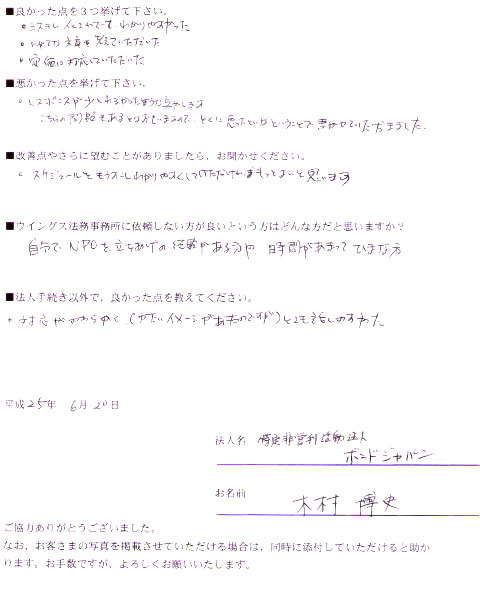 ■良かった点を３つ挙げて下さい。
・システム化されていて、わかりやすかった
・文章を考えていただいた
・安価に対応していただいた
■悪かった点を挙げて下さい。
・レスポンスが少しわるかった
こちらの問題もあると思いますので、とくに悪いということで書かせていただきました。
■改善点やさらに望むことがありましたら、お聞かせください。
・スケジュールをもう少しわかりやすくしていただければもっとよいと思います
■ウイングス法務事務所に依頼しない方が良いという方はどんな方だと思いますか？
自分でNPOを立ちあげの経験がある方や、時間があまってひまな方
■法人手続き以外で、良かった点を教えてください。
・対応がやわらかく、(かたいイメージがあったのですが)とても話しやすかった
平成25年 6月20日
法人名 特定非営利活動法人
ボンドジャパン
お名前 木村 博史
ご協力ありがとうございました。
なお、お客さまの写真を掲載させていただける場合は、同時に添付していただけると助か
ります。お手数ですが、よろしくお願いいたします。